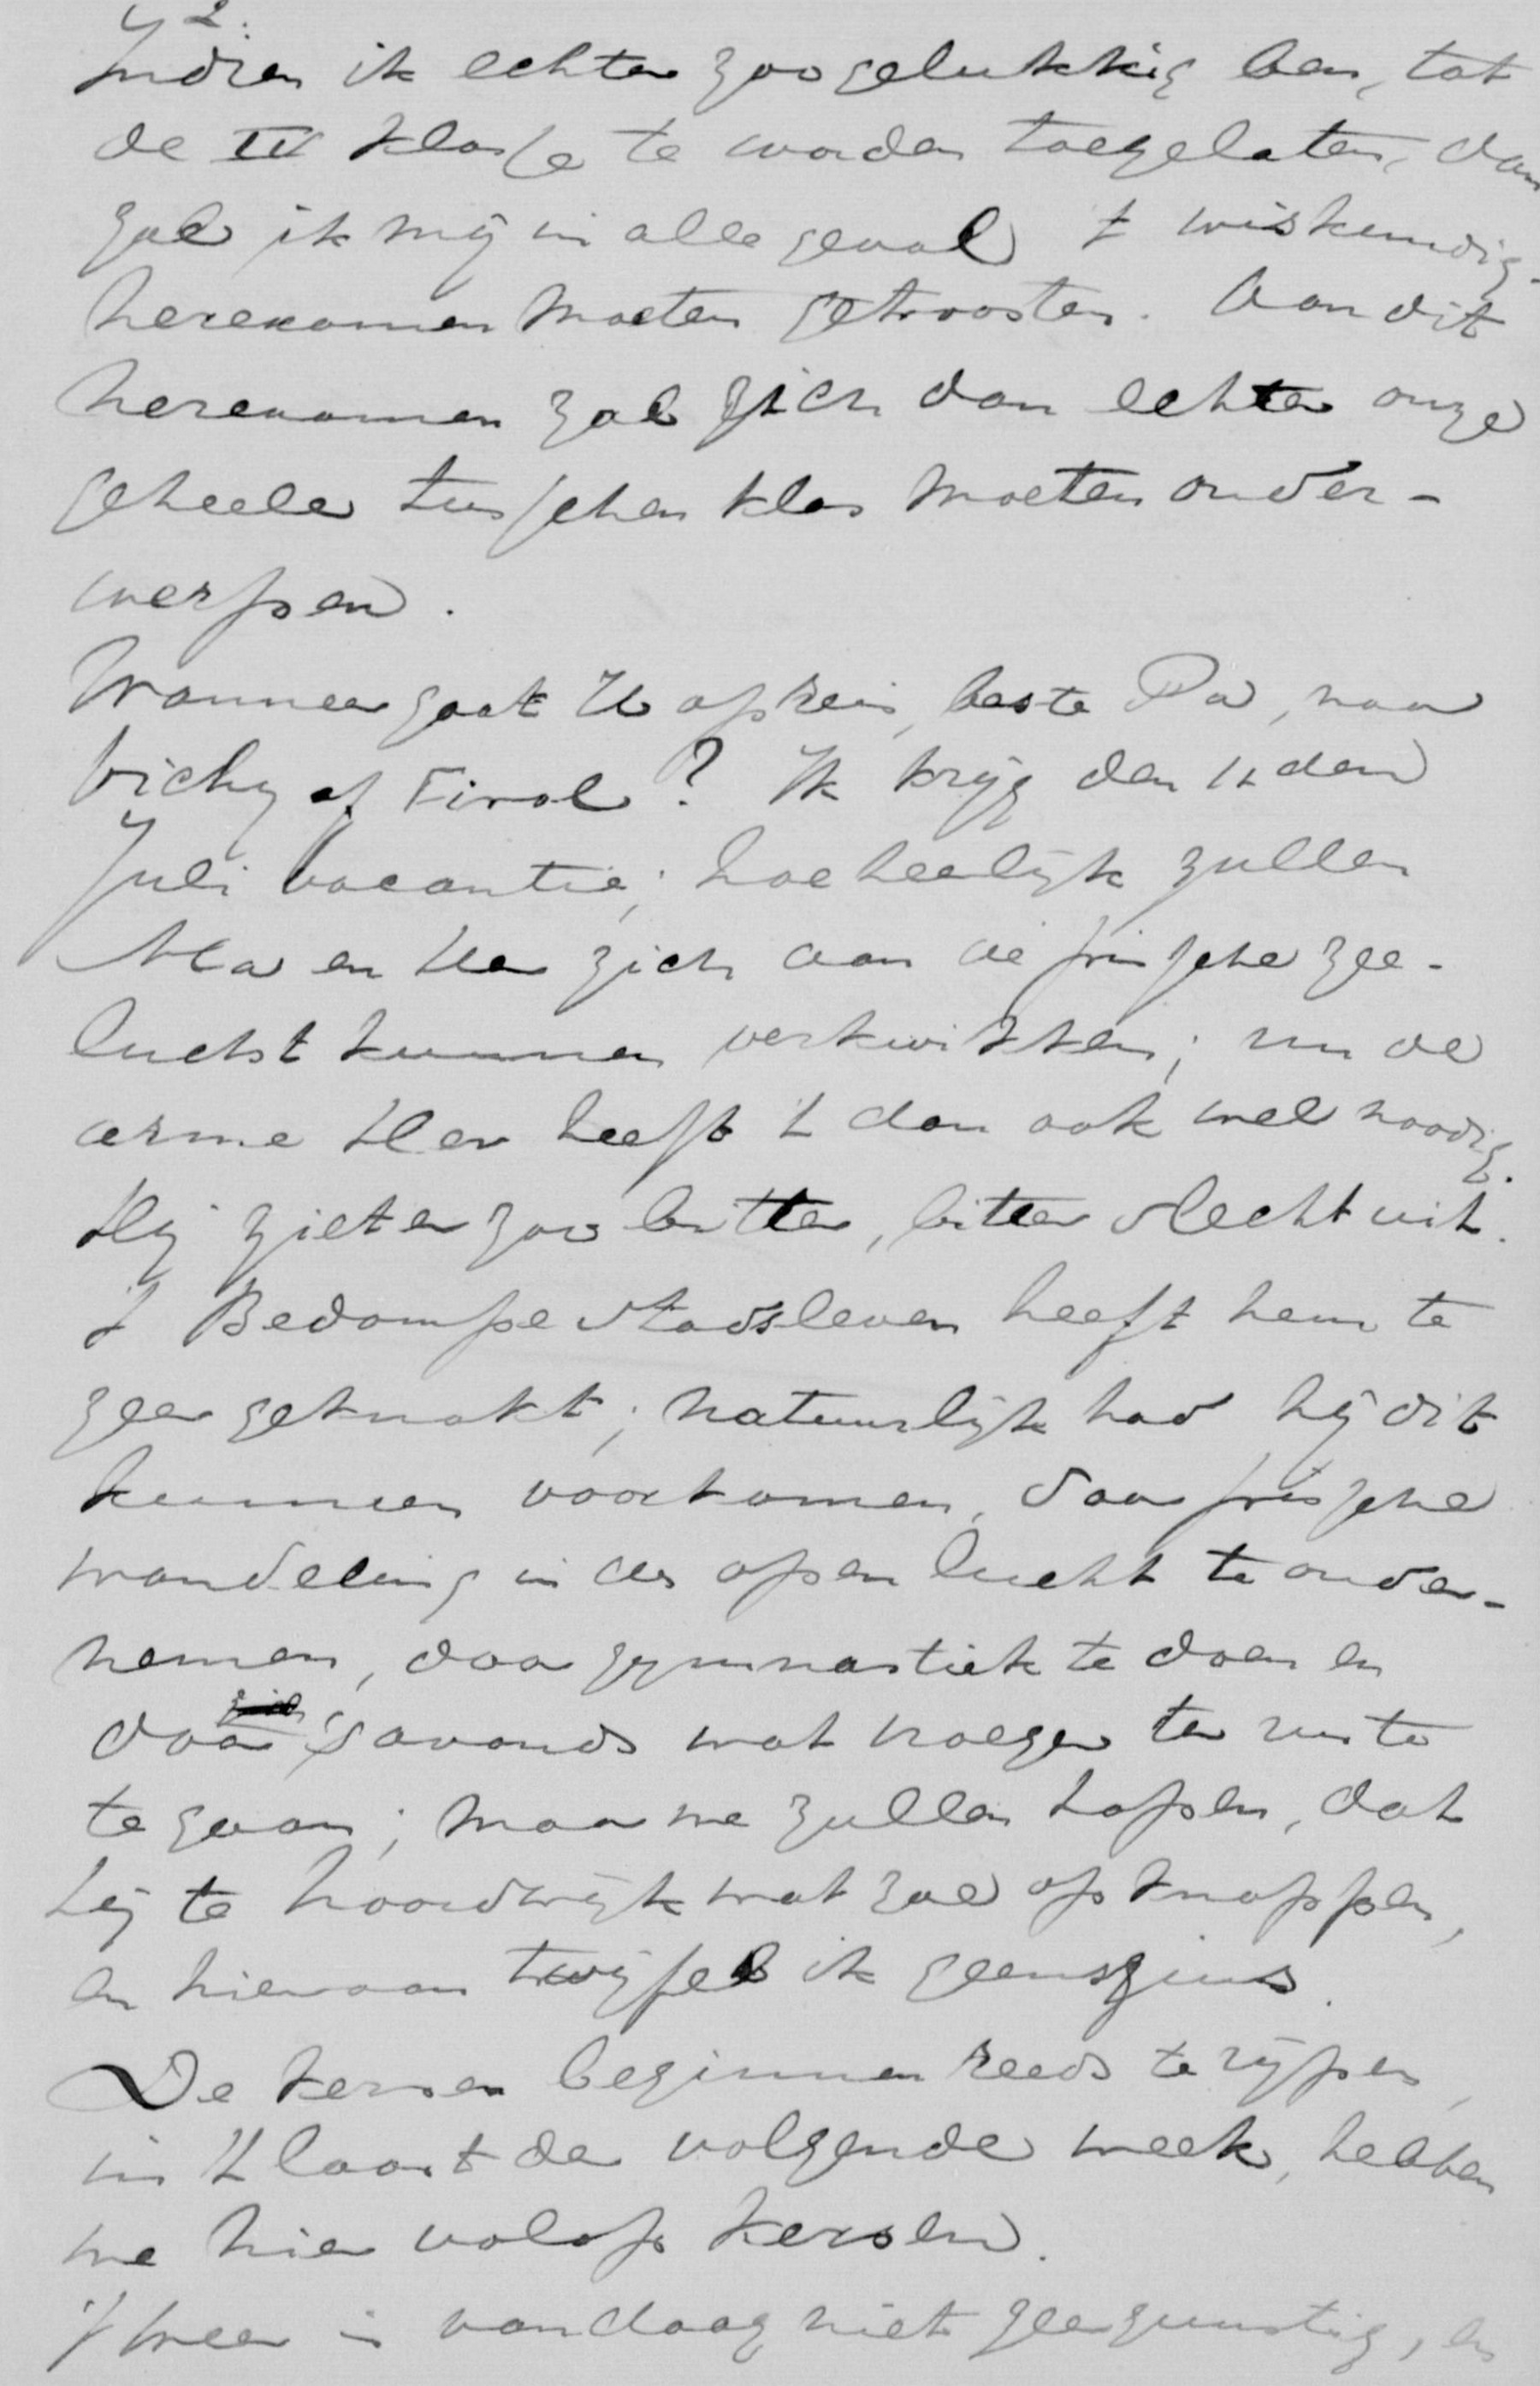 2.
Indien ik echter zoo gelukkig ben, tot
de IV klasse te worden toegelaten, dan
zal ik mij in alle geval 't wiskundig-
herexamen moeten getroosten. Aan dit
herexamen zal zich dan echter onze
geheele tusschen klas moeten onder-
werpen.
Wanneer gaat U op reis, beste Pa, naar
Vichy of Tirol? Ik krijg den 12 den
Juli vacantie; hoe heerlijk zullen
Ma en Her zich aan de frissche zee-
lucht kunnen verkwikken; nu de
arme Her heeft 't dan ook wel noodig.
Hij ziet er zoo bitter, bitter slecht uit.
't Bedompe stadsleven heeft hem te
zeer geknakt; natuurlijk had hij dit
kunnen voorkomen, door frissche
wandeling in de open lucht te onder-
nemen, door gymnastiek te doen en
door 's avonds wat vroeger ter ruste
te gaan; maar we zullen hopen, dat
hij te Noordwijk wat zal opknappen,
en hieraan twijfel ik geenszins.
De kersen beginnen reeds te rijpen,
in 't laatst der volgende week, hebben
we hier volop kersen.
't Weer is vandaag niet zeer gunstig, en